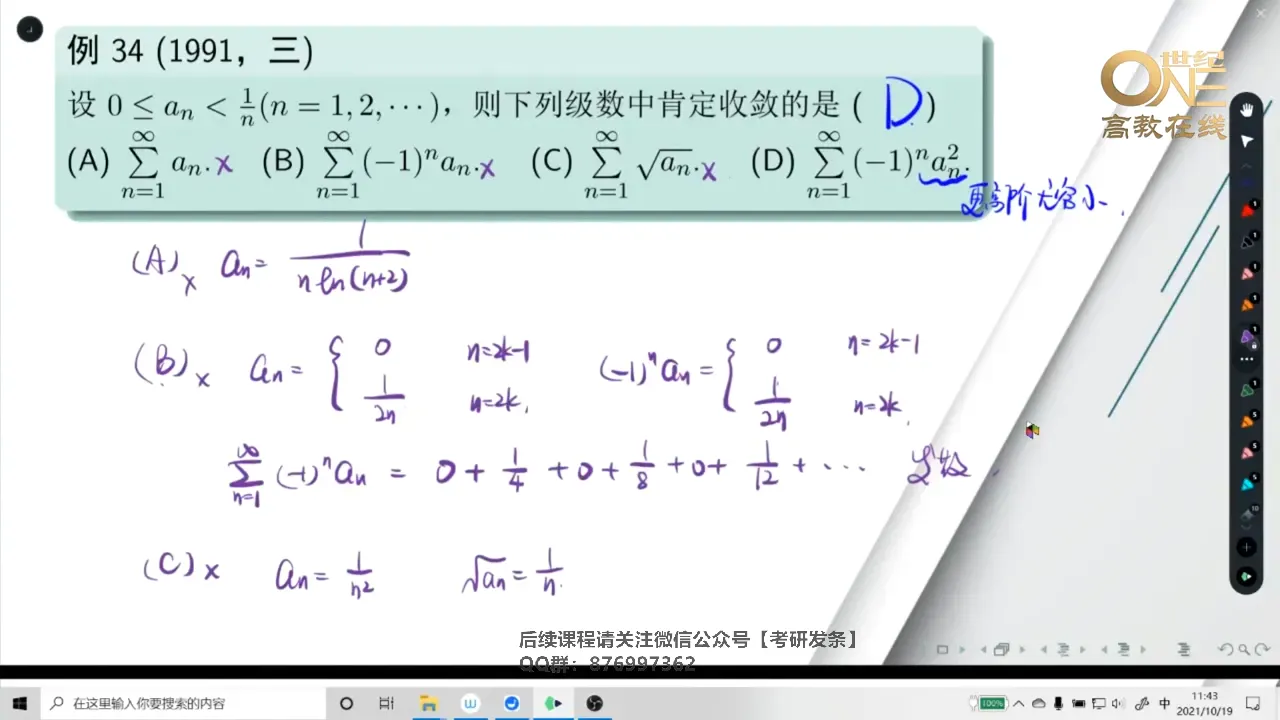 例 34 (1991, 三)
设 0 ≤ aₙ < 1/n (n = 1, 2, ⋯), 则下列级数中肯定收敛的是 ( D )
(A) ∑_{n=1}^{∞} aₙ. × (B) ∑_{n=1}^{∞} (−1)ⁿaₙ. × (C) ∑_{n=1}^{∞} √aₙ. × (D) ∑_{n=1}^{∞} (−1)ⁿaₙ².
更高阶无穷小.
(A) × aₙ = 1/(n ln(n+2))
(B) × aₙ = { 0 n=2k-1 (-1)ⁿaₙ = { 0 n=2k-1
1/2n n=2k, 1/2n n=2k,
∑_{n=1}^{∞} (-1)ⁿaₙ = 0 + 1/4 + 0 + 1/8 + 0 + 1/12 + ⋯ 发散.
(C) × aₙ = 1/n² √aₙ = 1/n.
世纪
ONE
高教在线
后续课程请关注微信公众号【考研发条】
QQ群: 876997362
在这里输入你要搜索的内容
100%
中
11:43
2021/10/19